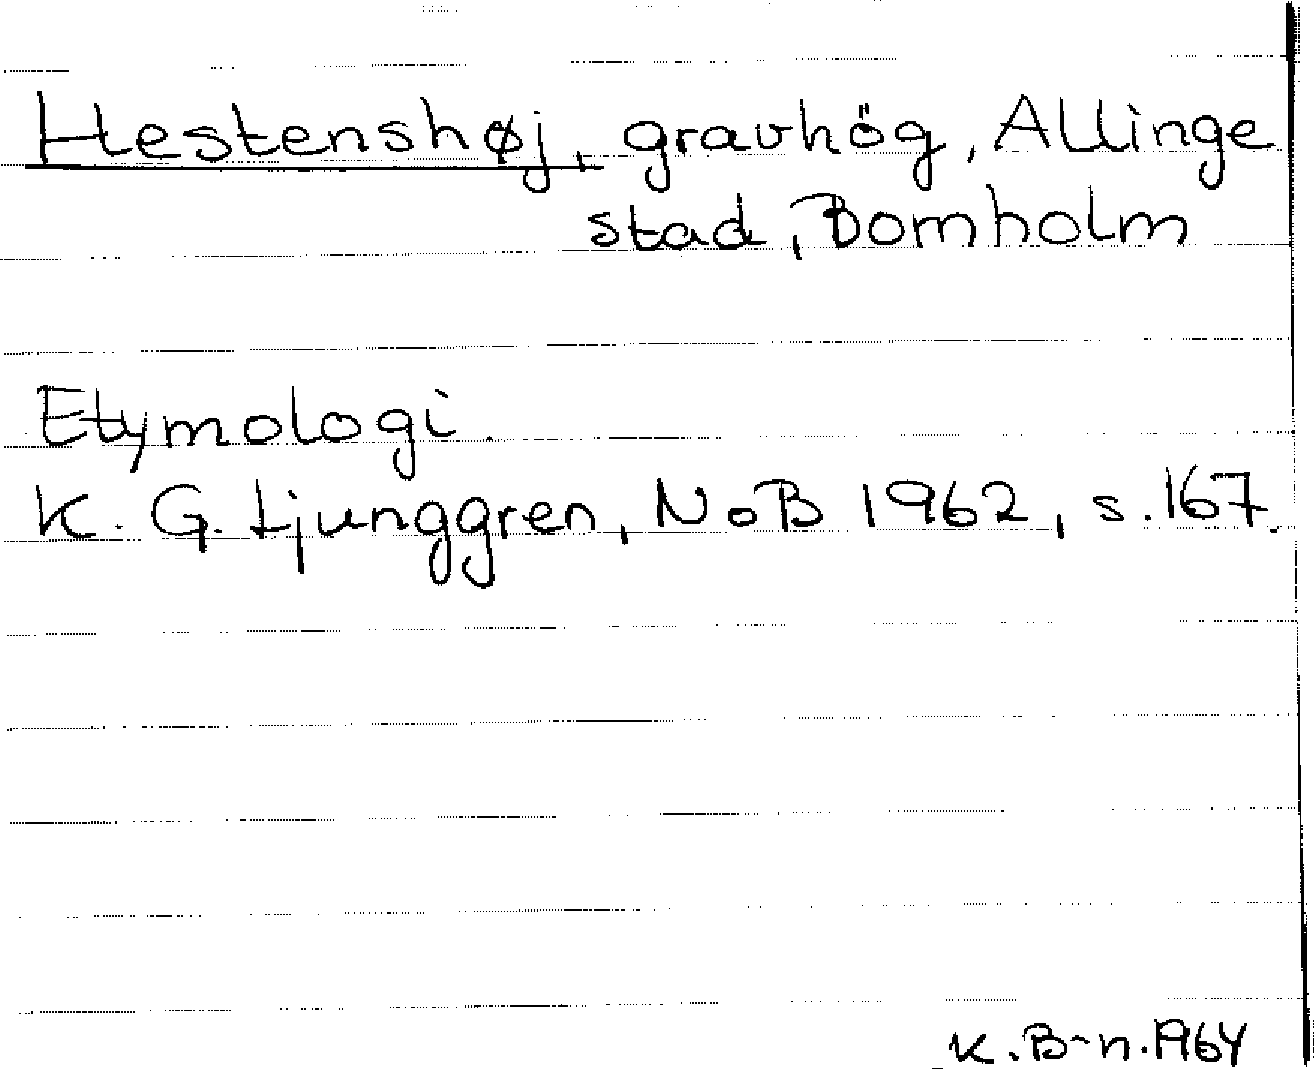 Hestenshøj, gravhög, Allinge
stad, Bornholm
Etymologi.
K. G. Ljunggren, NoB 1962, s. 167.
K. B-n. 1964